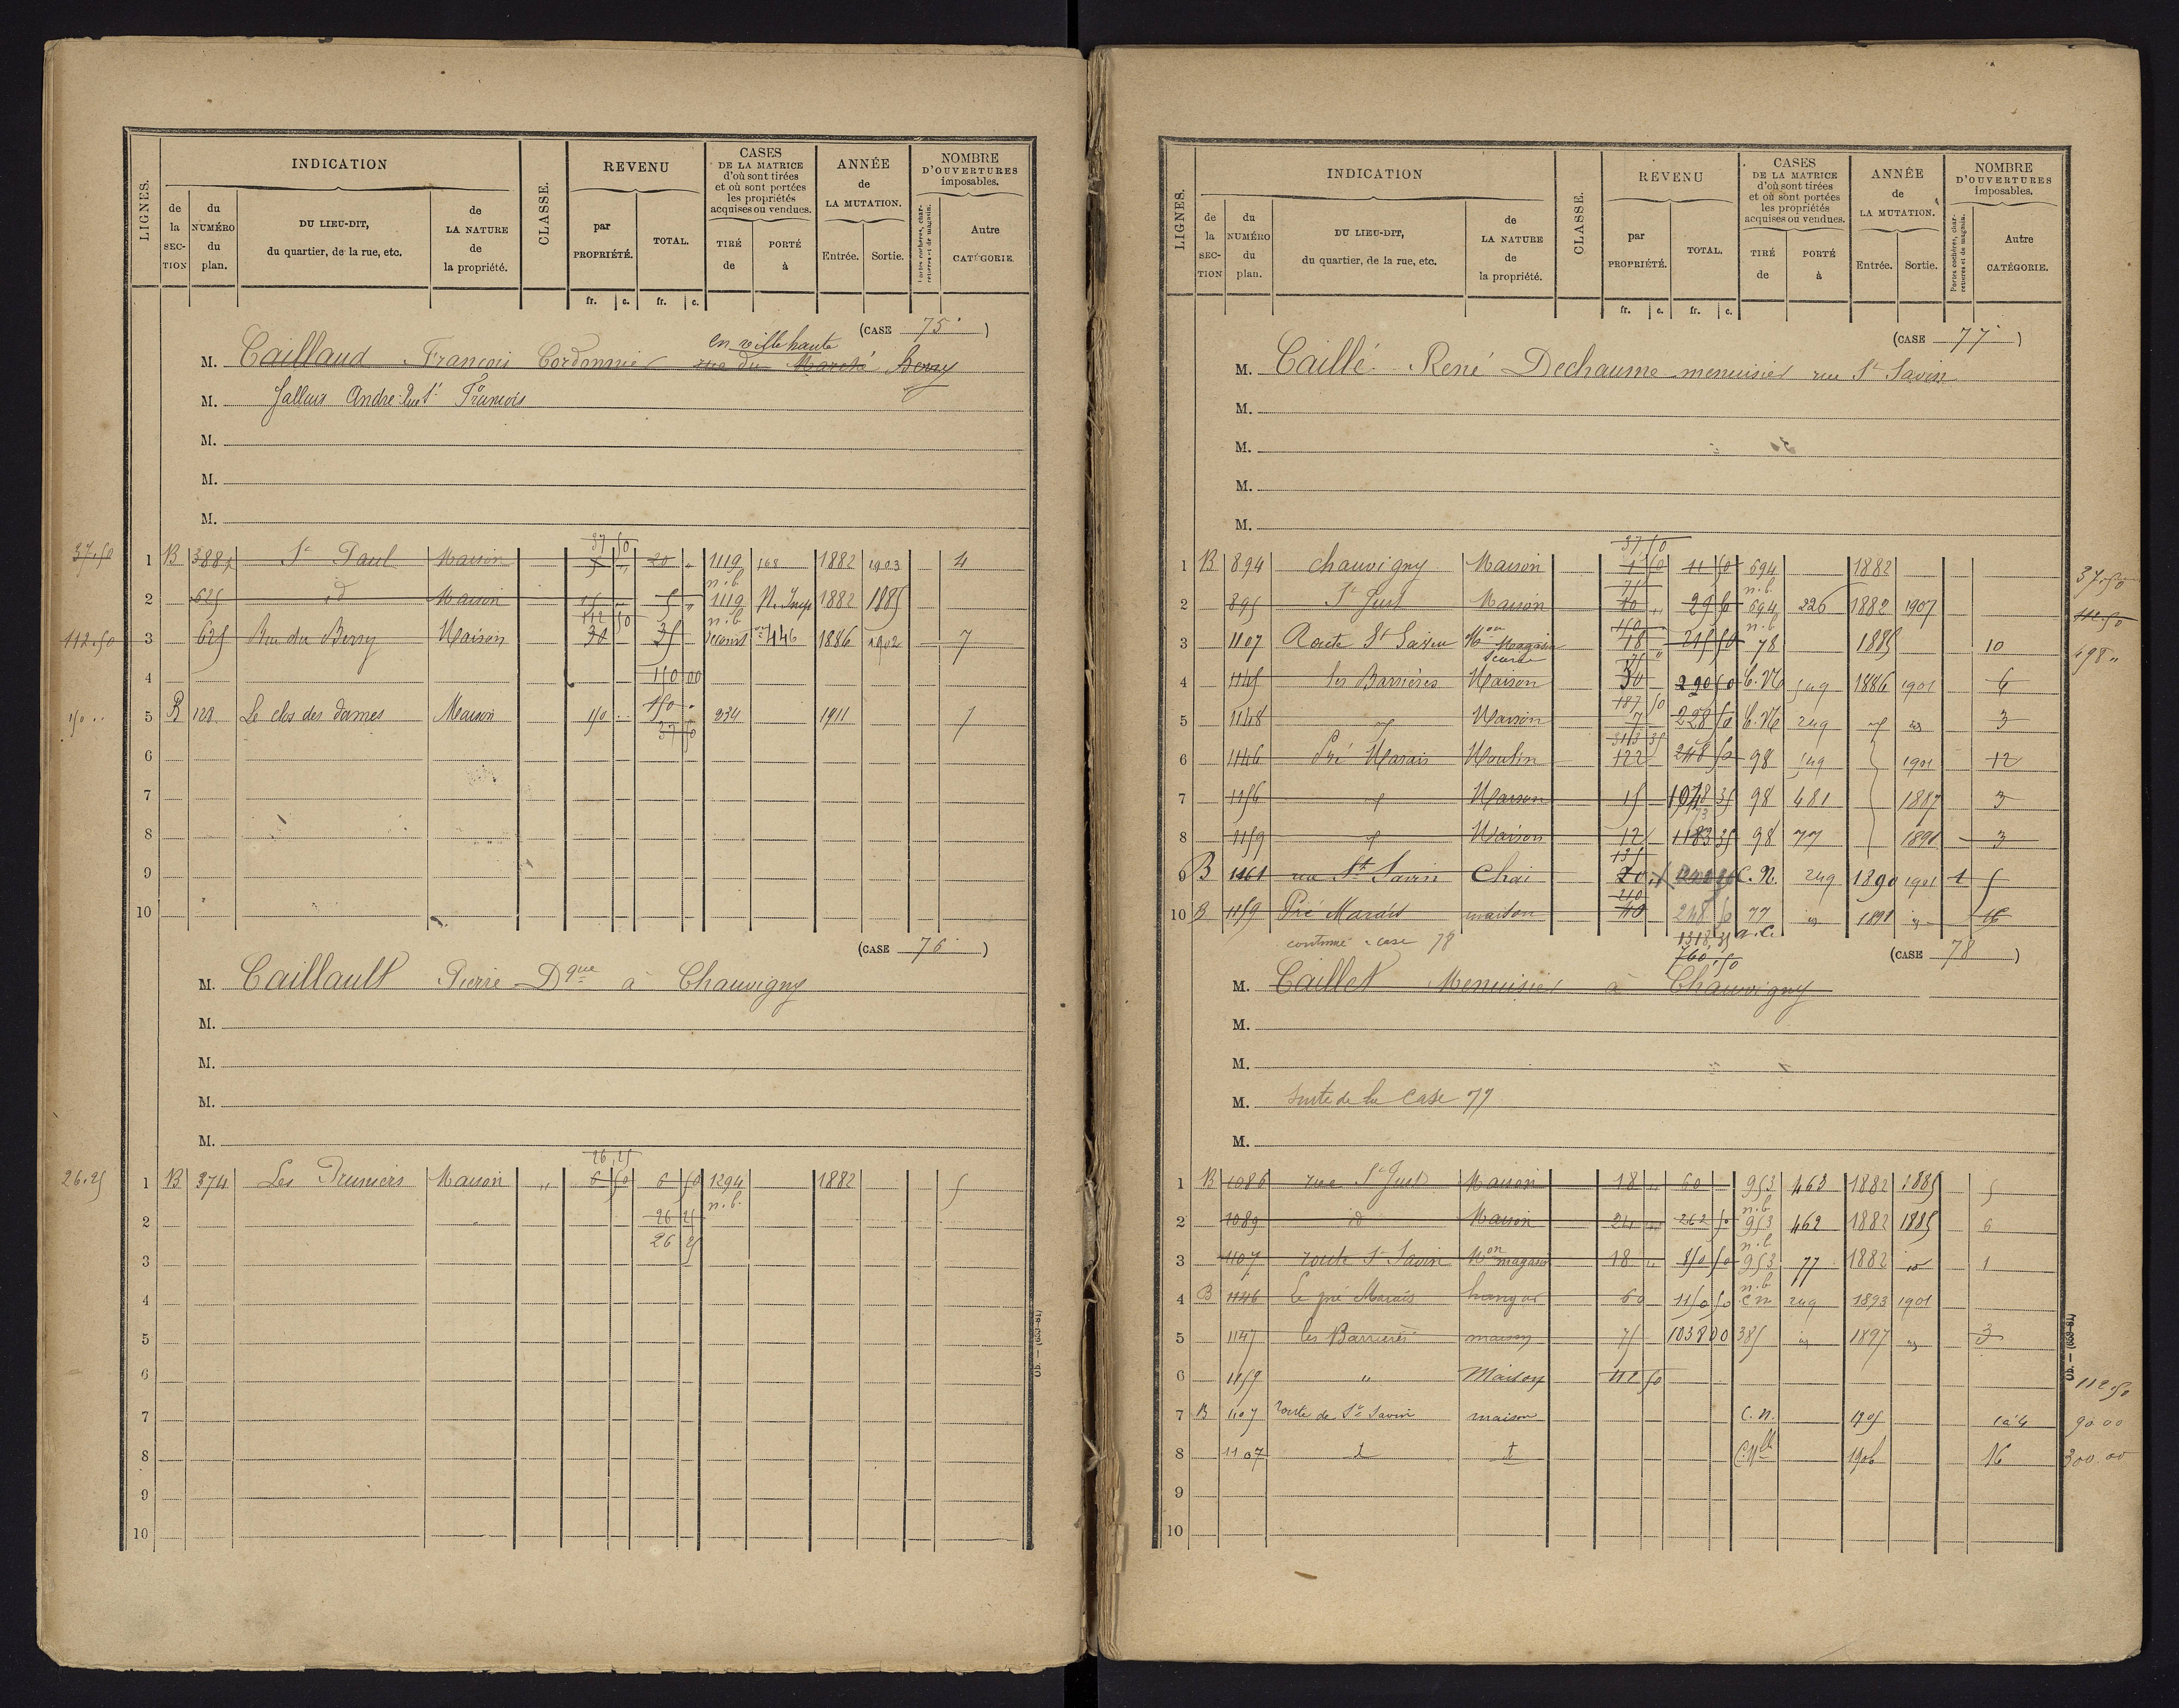 LIGNES.
INDICATION
de la SECTION
du NUMÉRO du plan.
DU LIEU-DIT, du quartier, de la rue, etc.
de LA NATURE de la propriété.
CLASSE.
REVENU
par PROPRIÉTÉ.
TOTAL.
fr. c. fr. c.
CASES DE LA MATRICE d'où sont tirées et où sont portées les propriétés acquises ou vendues.
TIRÉ de
PORTÉ à
ANNÉE de LA MUTATION.
Entrée. Sortie.
NOMBRE D'OUVERTURES imposables.
Portes cochères, charretières et de magasin.
Autre CATÉGORIE.
(CASE 75)
en ville haute
M. Caillaud François Cordonnier rue du Marché Berry
M. Jallais André François
M.
M.
M.
37 50
37.50 1 B 388 St Paul Maison 5 20 1119 168 1882 1903 4
n.b.
2 625 id Maison 15 5 1119 N. Imp 1882 1885
112 50 n.b.
112.50 3 625 Rue du Berry Maison 30 35 446 1886 1902 7
4 150 00
150.. 5 B 120 Le clos des dames Maison 150 .. 150 234 1911 7
37 50
6
7
8
9
10
(CASE 76)
M. Caillault Pierre Dque à Chauvigny
M.
M.
M.
M.
26 25
26.25 1 B 374 Les Pruniers Maison " 6 50 6 50 1294 1882 5
n.b.
2 26 25
26 25
3
4
5
6
7
8
9
10
Ob. — (633-81)
LIGNES.
INDICATION
de la SECTION
du NUMÉRO du plan.
DU LIEU-DIT, du quartier, de la rue, etc.
de LA NATURE de la propriété.
CLASSE.
REVENU
par PROPRIÉTÉ.
TOTAL.
fr. c. fr. c.
CASES DE LA MATRICE d'où sont tirées et où sont portées les propriétés acquises ou vendues.
TIRÉ de
PORTÉ à
ANNÉE de LA MUTATION.
Entrée. Sortie.
NOMBRE D'OUVERTURES imposables.
Portes cochères, charretières et de magasin.
Autre CATÉGORIE.
(CASE 77)
M. Caillé René Dechaume menuisier rue St Savin
M.
M.
M.
M.
37 50
1 B 894 Chauvigny Maison 1 50 11 50 694 1882 37.50
75 n.b.
2 895 St Just Maison 10 29 50 694 226 1882 1907 112.50
150 n.b.
3 1107 Route St Savin Mon Magasin 18 215 50 78 1885 10 498 "
75
4 1145 les Barrières Maison 30 290 50 C.N. 1886 1901 6
187 50
5 1148 Maison 7 228 50 C.N. 249 3
3113 35
6 1146 Pré Marais Moulin 122 248 50 98 1901 12
7 1156 Maison 15 1048 35 98 481 1887 3
8 1159 Maison 12 1183 35 98 77 1891 3
135
9 B 1161 rue St Savin Chai 20 C.N. 249 1890 1901 1 5
210
10 B 1159 Pré Marais maison 40 248 50 77 1891 16
continué case 78 1318,35 a.c.
760,50
(CASE 78)
M. Caillet Menuisier à Chauvigny
M.
M.
M. Suite de la Case 77
M.
1 B 1086 rue St Just Maison 18 60 953 463 1882 1885 5
n.b
2 1089 id Maison 24 262 50 953 462 1882 1885 6
n.b
3 1107 route St Savin Mon magasin 18 850 50 953 77 1882 1
n.b
4 B 1146 Le pré Marais hangar 60 1150 50 C.N 249 1893 1901
5 1147 les Barrières maison 75 1038 00 385 1897 3
6 1159 " Maison 112 50 112.50
7 B 1107 route de St Savin maison C.N. 1905 1 à 4 90.00
8 1107 C.Nlle 1906 16 300.00
9
10
Ob. — (633-81)